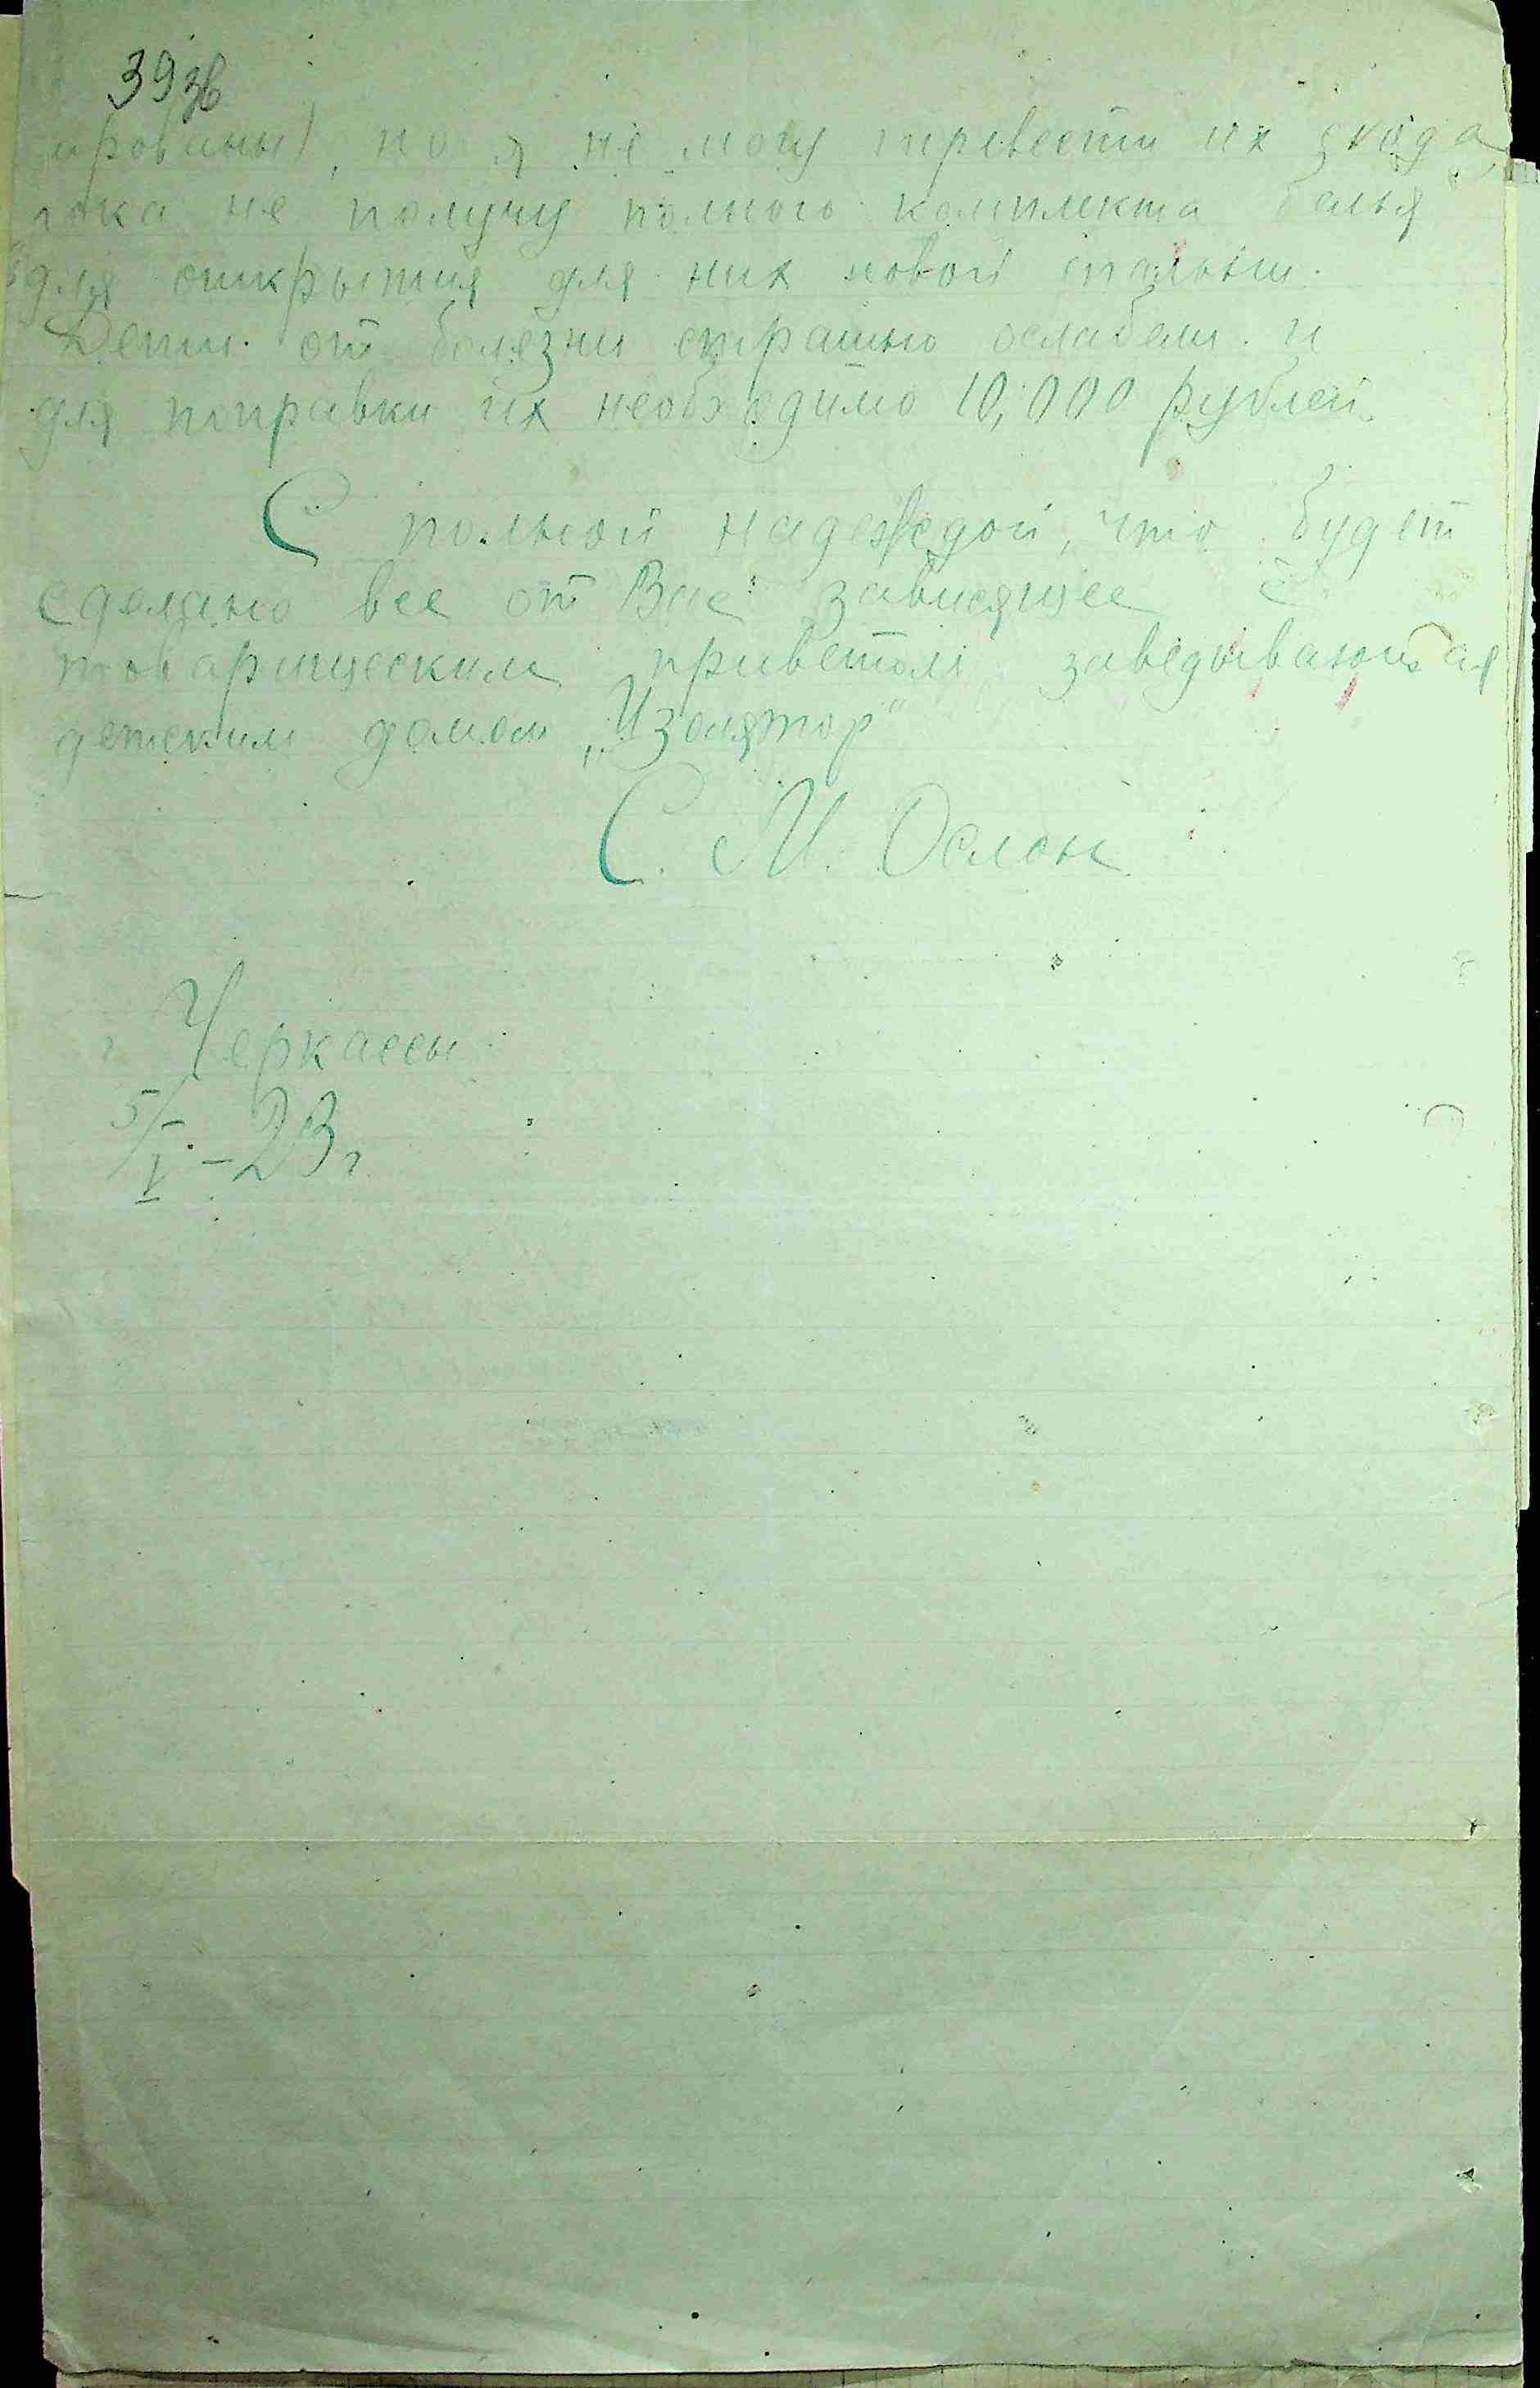 39 зв
ированы), но я не могу перевести их сюда
пока не получу полного комплекта белья
для открытия для них новой спальни.
Дети от болезни страшно ослабели и
для поправки их необходимо 10,000 рублей.
С полной надеждой, что будет
сделано все от Вас зависящее с
товарищеским приветом заведывающая
детским домом „Изолятор"
С. М. Ослон
г Черкассы
5/V - 23 г